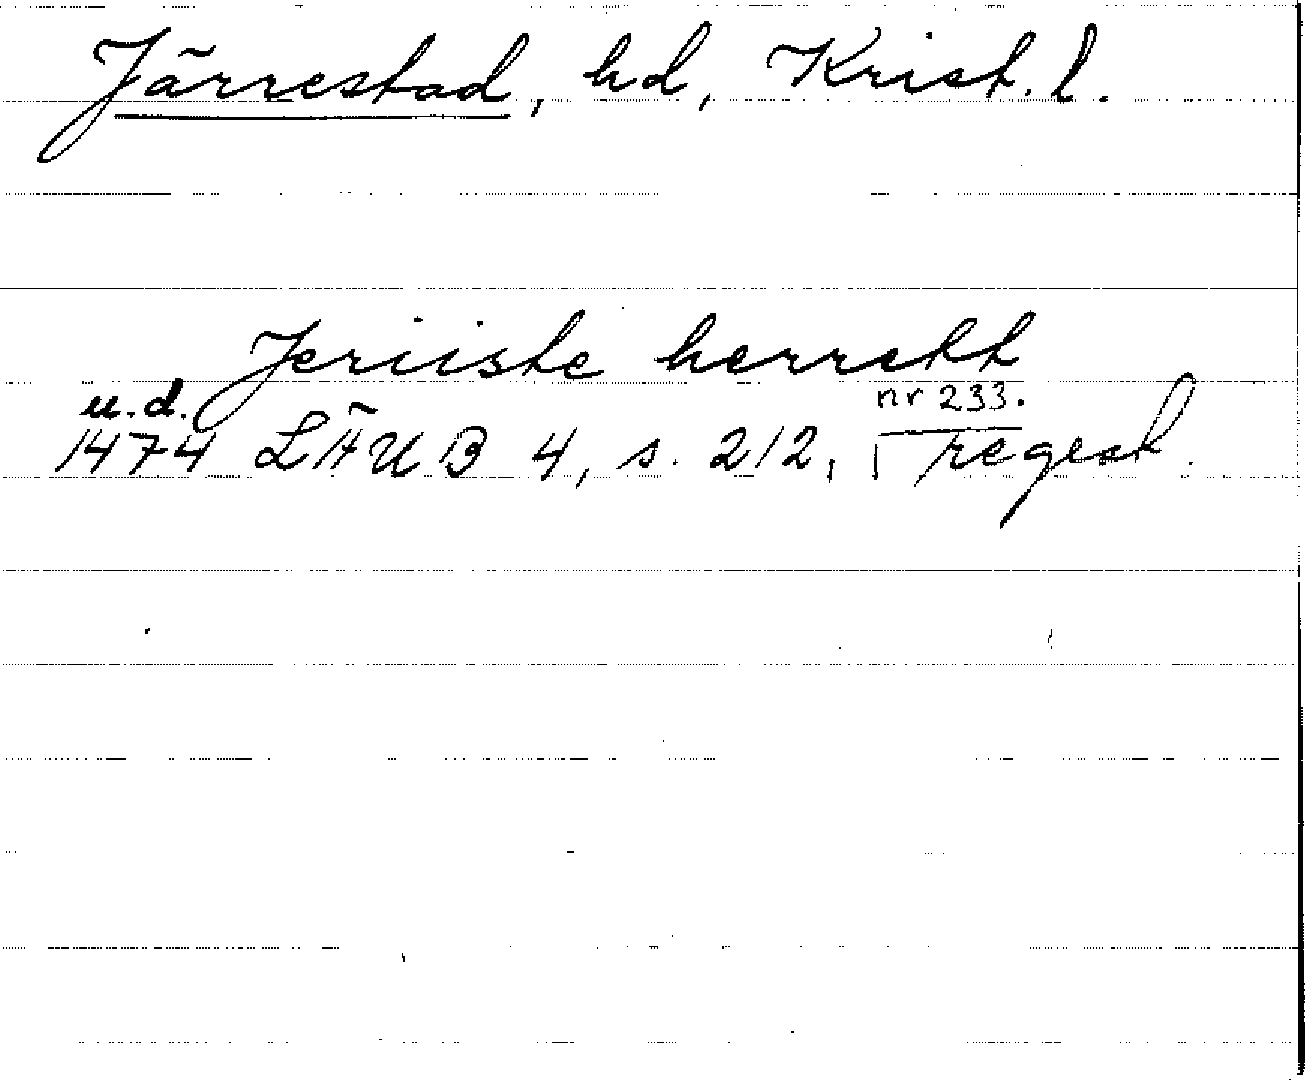 Järrestad, hd, Krist. l.
Jeriiste herrekt
u.d. nr 233.
1474 LÄUB 4, s. 212, regest.